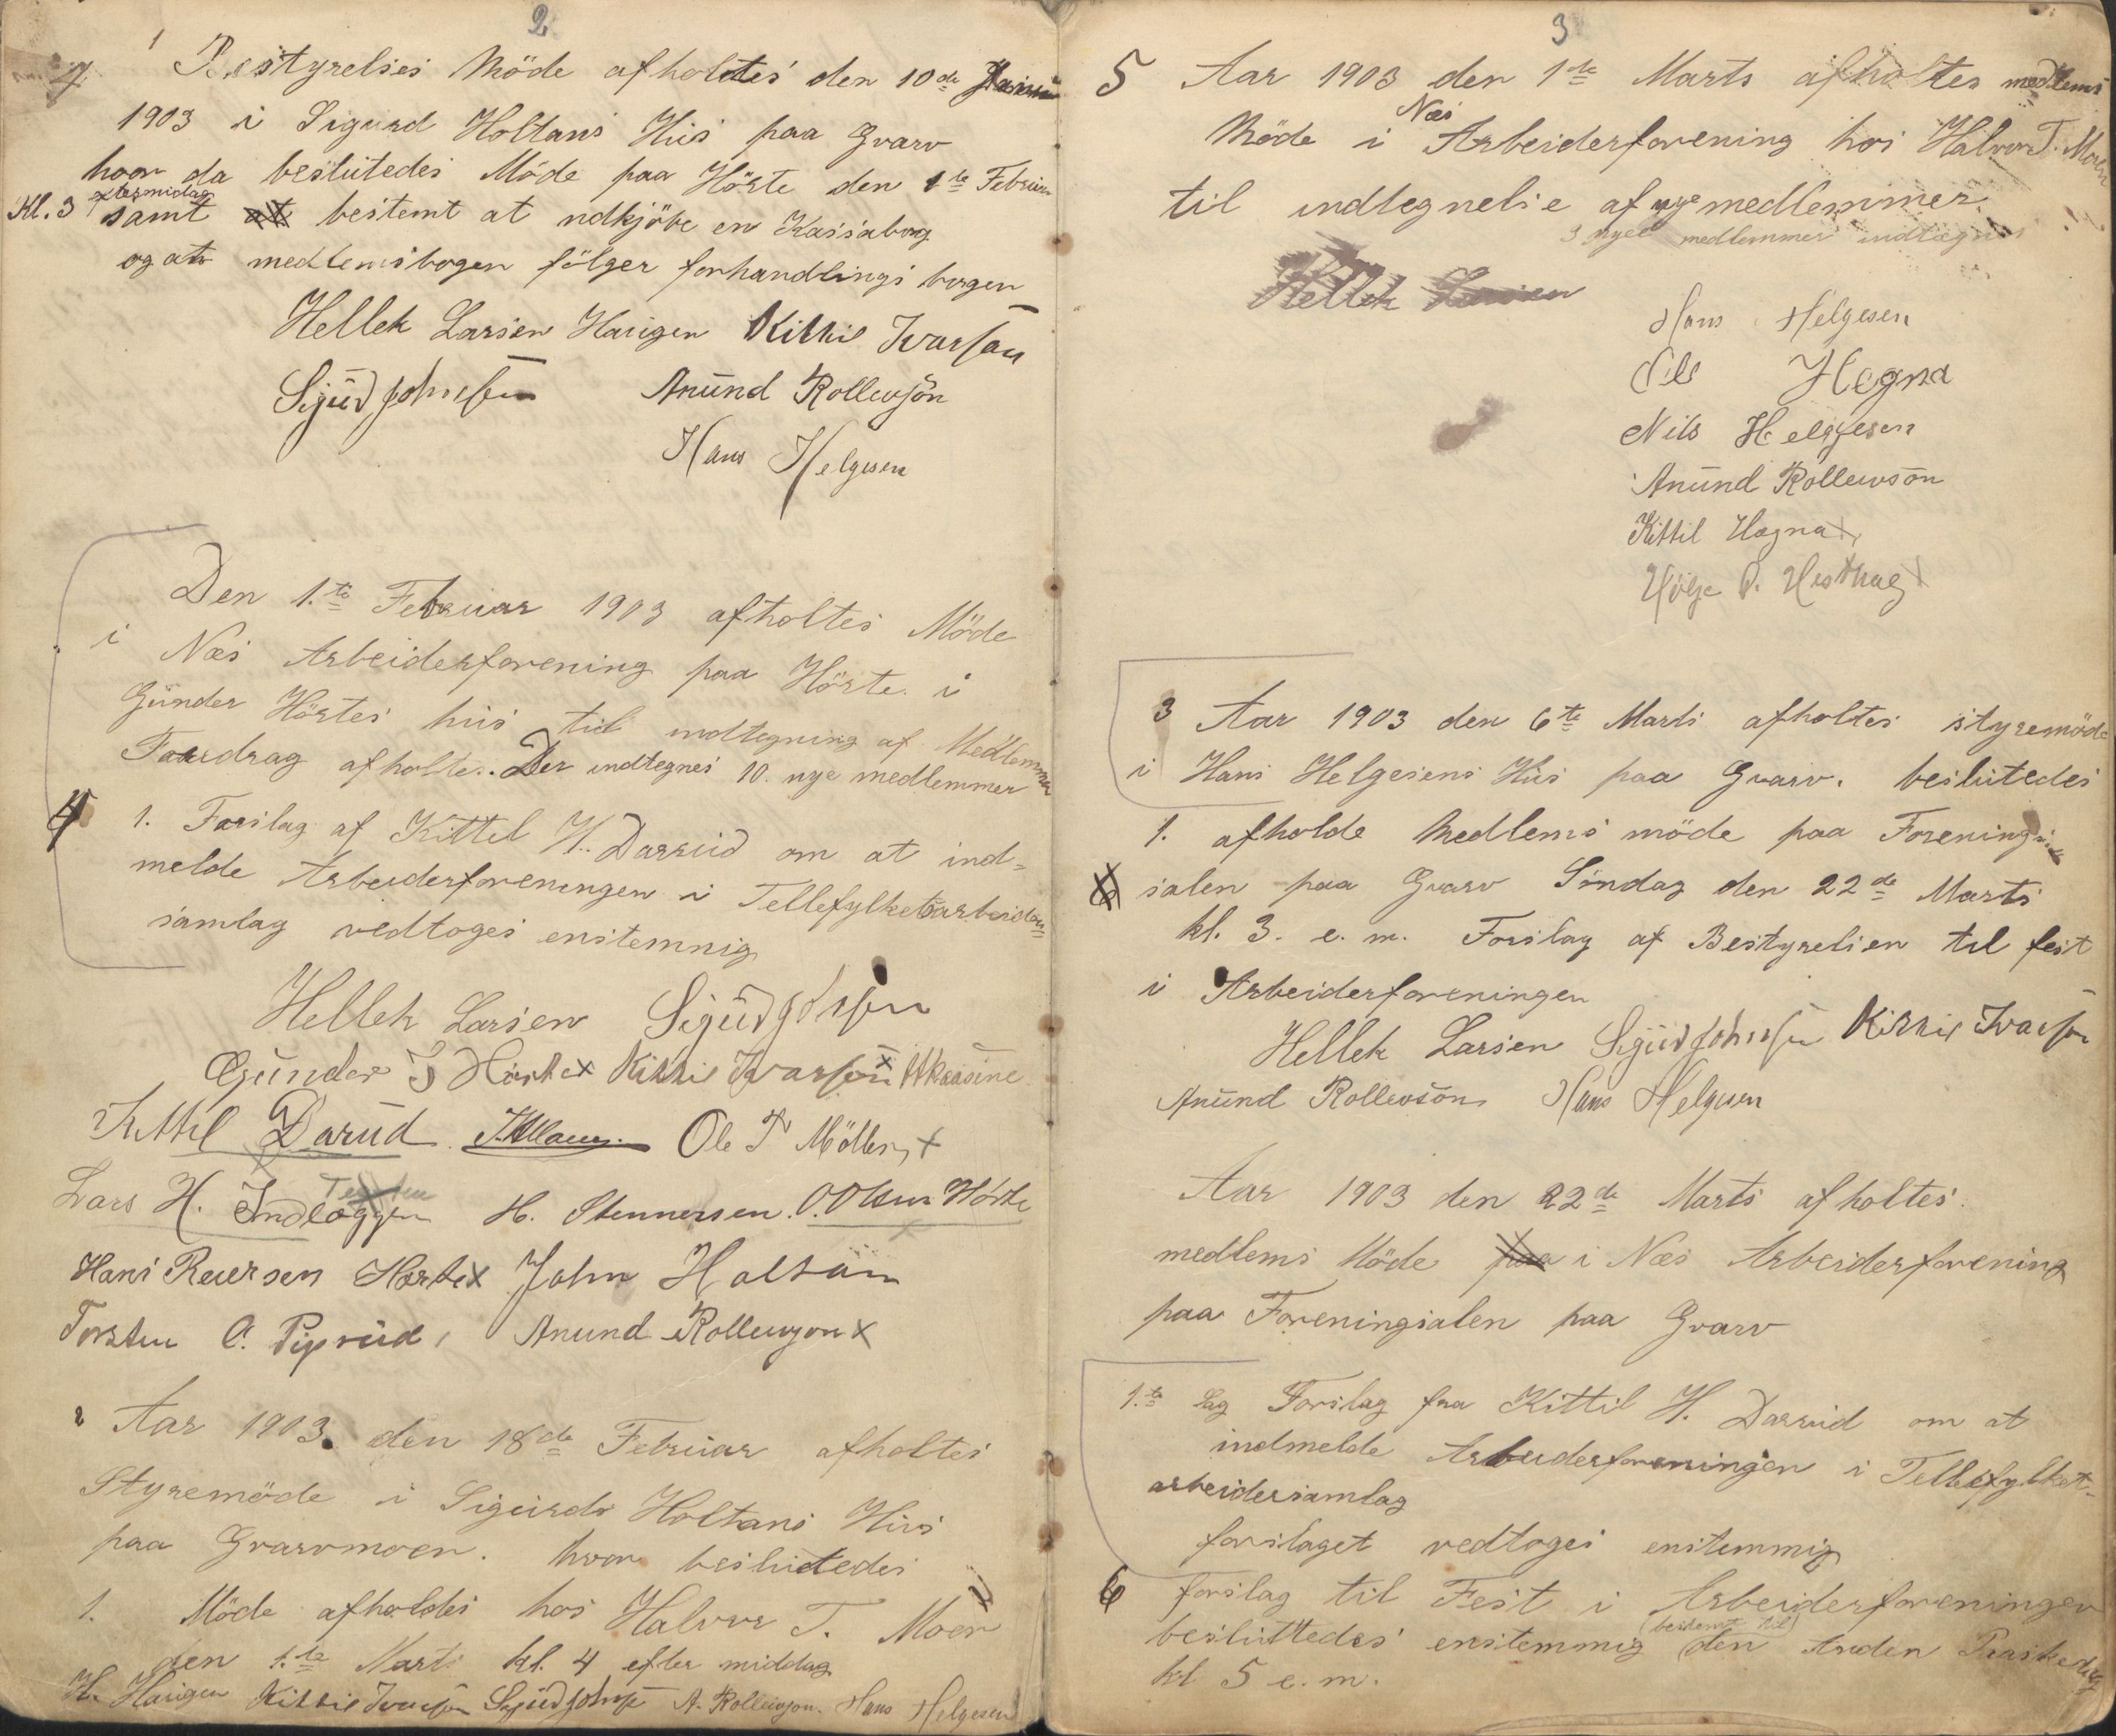 2
1 Bestyrelses Möde afholdtes den 10de
4
1903 i Sigurd Holtans Hus paa Gvarv
hvor da beslutedes Möde paa Hörte den 1te Februar
Kl. 3 eftermidag samt at bestemt at udkjöbe en Kassabog
og at medlemsbogen fölger forhandlings bogen
Hellek Larsen Haugen Kittil Ivarson
Sigurd Johnsen Anund Rollevson
Hans Helgesen
Den 1.te Februar 1903 afholtes Möde
i Nes Arbeiderforening paa Hörte i
Gunder Hörtes hus til indtegning af Medlemmer
Foredrag afholdt. Der indtegnes 10. nye medlemmer
4 1. Forslag af Kittel H. Darrud om at ind-
melde Arbeiderforeningen i Tellefylketsarbeider=
samlag vedtoges enstemnig
Hellek Larsen Sigurd Johnsen
Gunder Hörte x Kittil Ivarson x
Kittil Darud Ole T Möllen x
Lars H. Indleggen H. Stennersen. O. Olsen Hörte
Hans Reiersen Hörte x John Holtan
Torsten O. Piprud, Anund Rollevson x
2 Aar 1903. den 18de Februar afholtes
Styremöde i Sigurds Holtans Hus
paa Gvarvmoen. hvor beslutedes
1. Möde afholdes hos Halvor T. Moen
den 1.te Marts kl. 4 efter middag
H. Haugen Kittil Ivarson Sigurd Johnsen A. Rollevson. Hans Helgesen
3
5 Aar 1903 den 1te Marts afholtes medlems
Möde i Nes Arbeiderforening hos Halvor T. Moen
til indtegnelse af nye medlemmer
3 nyee medlemmer indtegnes
Hellek Larsen
Hans Helgesen
Ole Hegna
Nils Helgesen
Anund Rollevson
Kittil Hegna x
Hölje
3 Aar 1903 den 6te Marts afholtes styremöde
i Hans Helgesens Hus paa Gvarv. beslutedes
1. afholde Medlems möde paa Forenings
salen paa Gvarv Söndag den 22de Marts
kl. 3. e. m. Forslag af Bestyrelsen til fest
i Arbeiderforeningen
Hellek Larsen Sigurd Johnsen Kittil Ivarson
Anund Rollevson Hans Helgesen
Aar 1903 den 22de Marts afholtes
medlems Möde paa i Nes Arbeiderforening
paa Foreningsalen paa Gvarv
1.te Sag Forslag fra Kittil H. Darrud om at
indmelde Arbeiderforeningen i Tellefylket-
arbeidersamlag
forslaget vedtoges enstemmig
6 forslag til Fest i Arbeiderforeningen
besluttedes enstemmig (bestemt til) den Anden Paaskedag
kl 5 e. m.